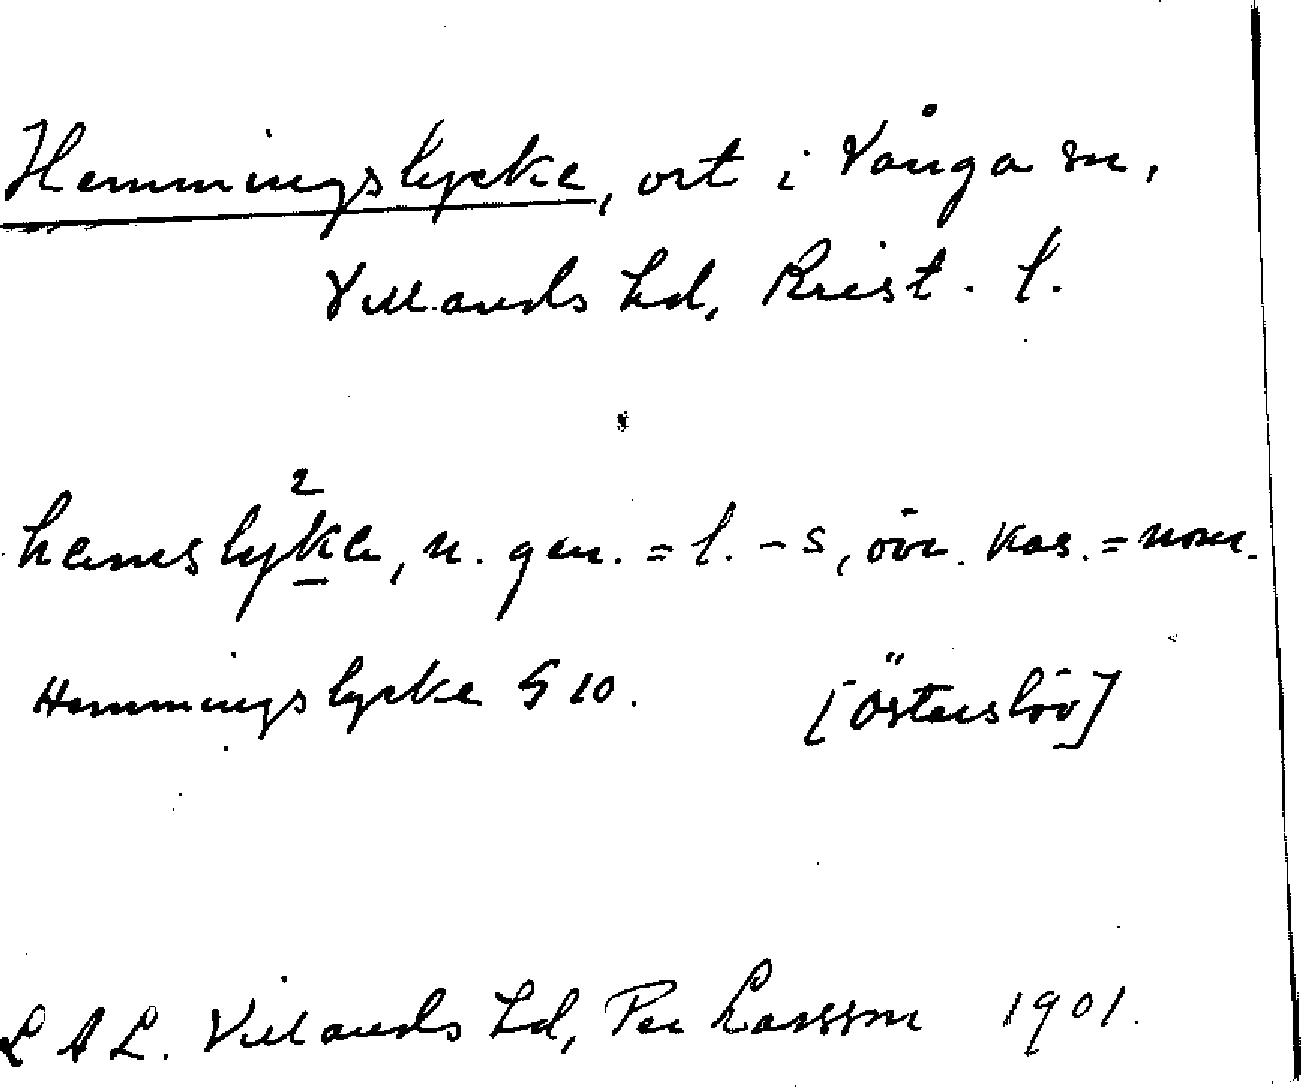 Hemmingslycke, ort i Vånga sn,
Villands hd, Krist. l.
hemslyk̲²e, n. gen. = l. -s, öv. kas. = nom.
Hemmingslycke G 10. [Österslöv]
L A L. Villands hd, Per Larsson 1901.